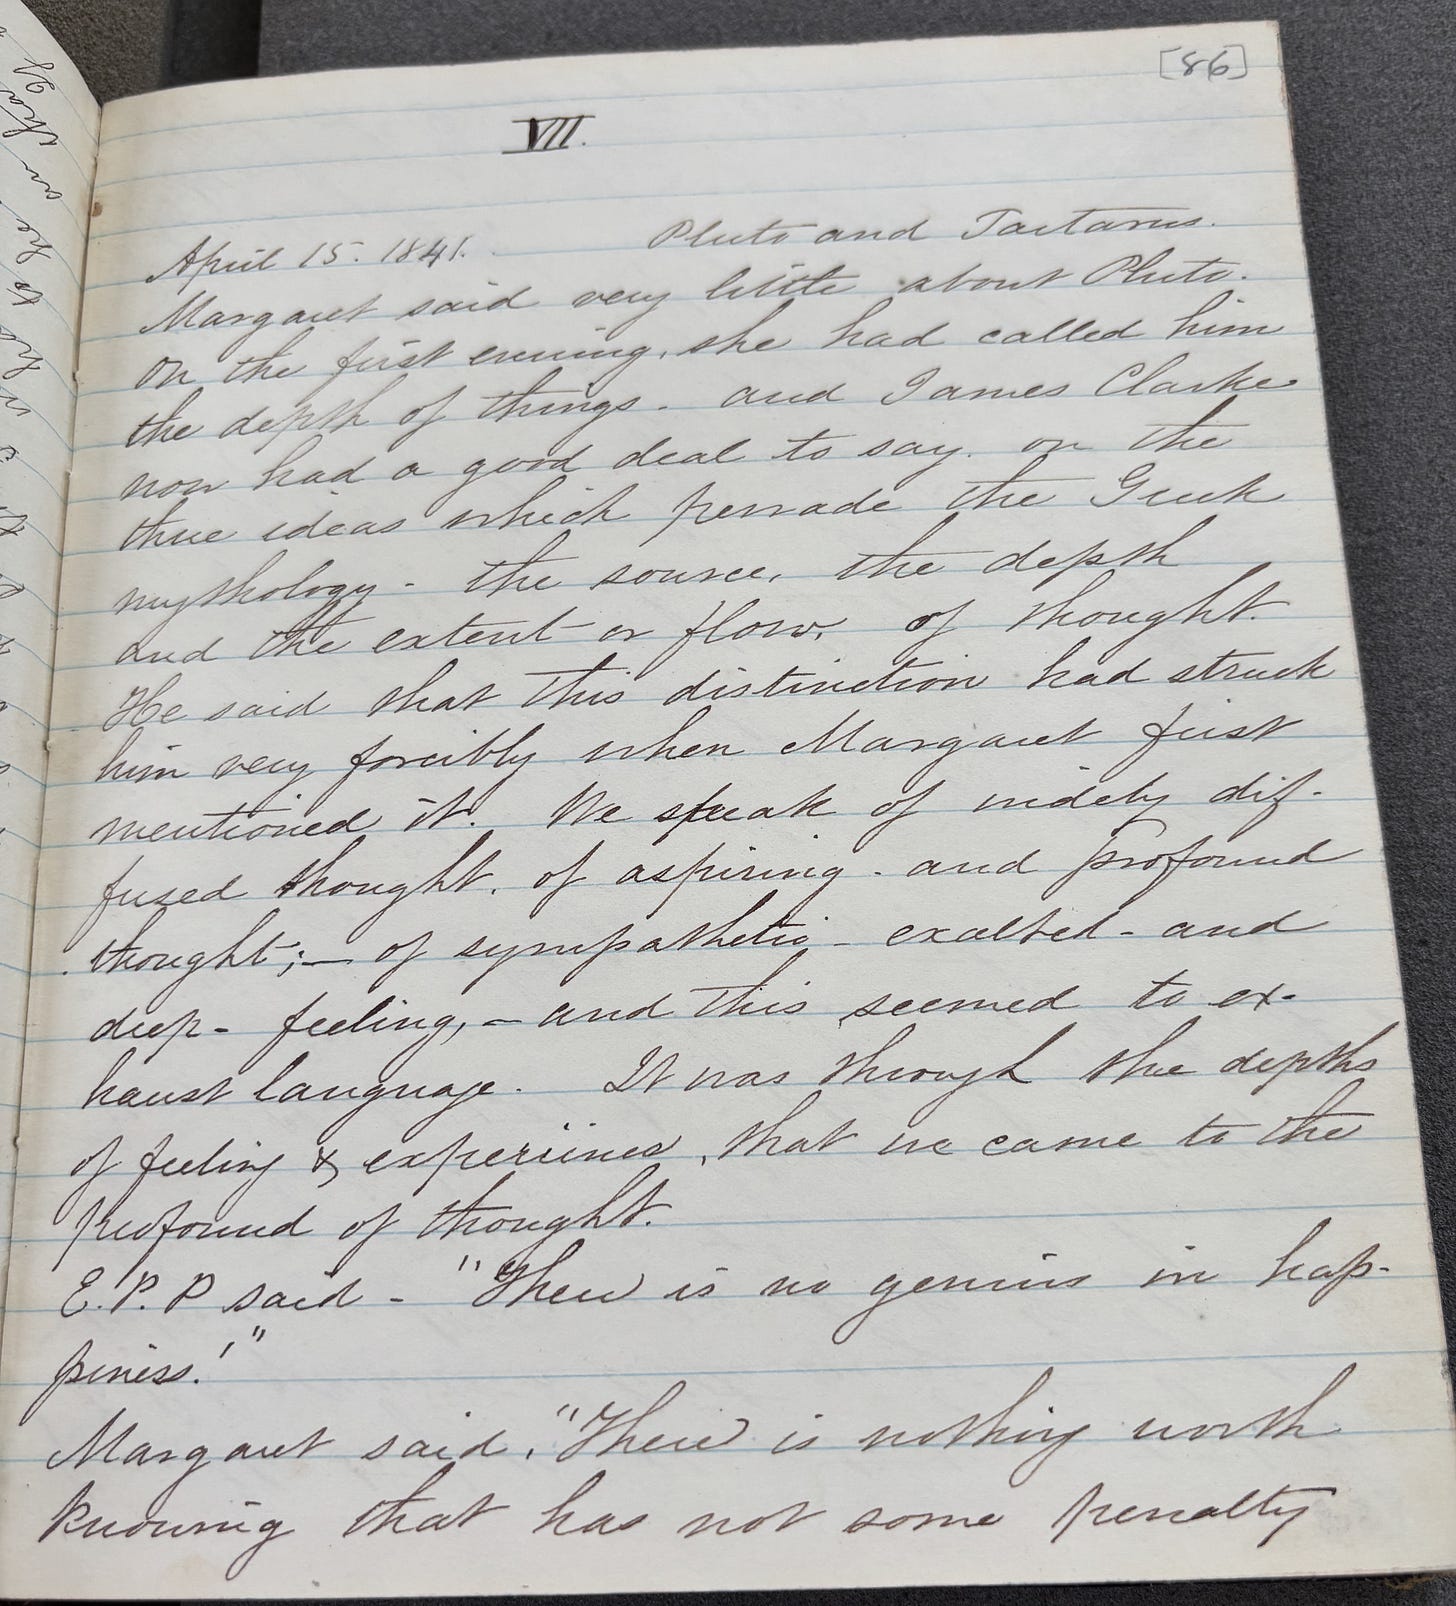 [86]
VII.
April 15. 1841. Pluto and Tartarus.
Margaret said very little about Pluto.
On the first evening, she had called him
the depth of things. and James Clarke
now had a good deal to say. on the
three ideas which pervade the Greek
mythology - the source, the depth
and the extent or flow, of thought.
He said that this distinction had struck
him very forcibly when Margaret first
mentioned it. We speak of widely dif-
fused thought. of aspiring - and profound
thought; — of sympathetic - exalted - and
deep - feeling, — and this seemed to ex-
haust language. It was through the depths
of feeling & experience, that we came to the
profound of thought.
E. P. P said - "There is no genius in hap-
piness!"
Margaret said, "There is nothing worth
knowing that has not some penalty